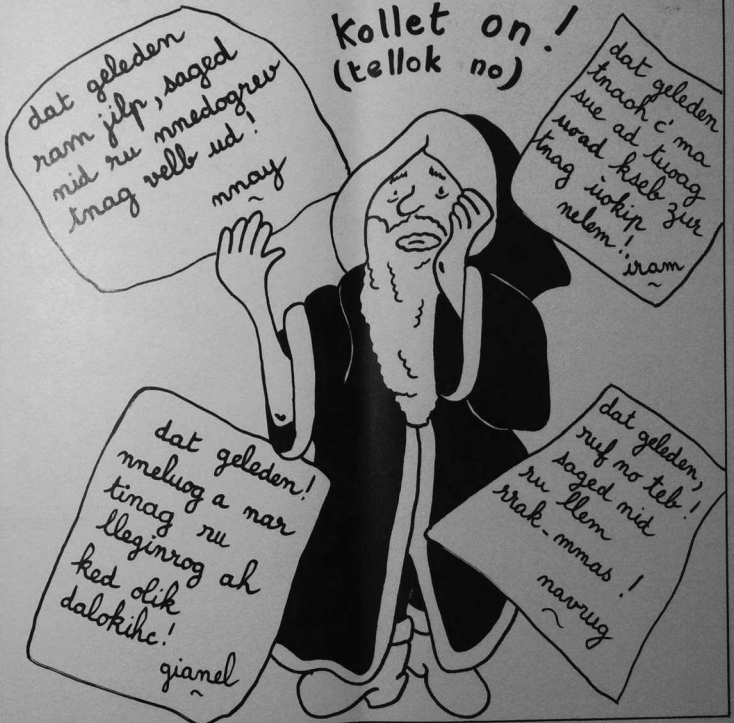 kollet on !
(tellok no)
dat geleden
ram jilp, saged
nid ru nnedogrev
tnag velb ud !
nnay
dat geleden
tnaoh c'ma
sue ad tuoag
uoad kseb zur
tnag ùokip
nelem !
iram
dat geleden!
nneluog a nar
tinag ru
lleginrog ah
ked olik
dalokihc!
gianel
dat geleden,
ruf no teb !
saged nid
ru llem
rrak-mmas !
navrug